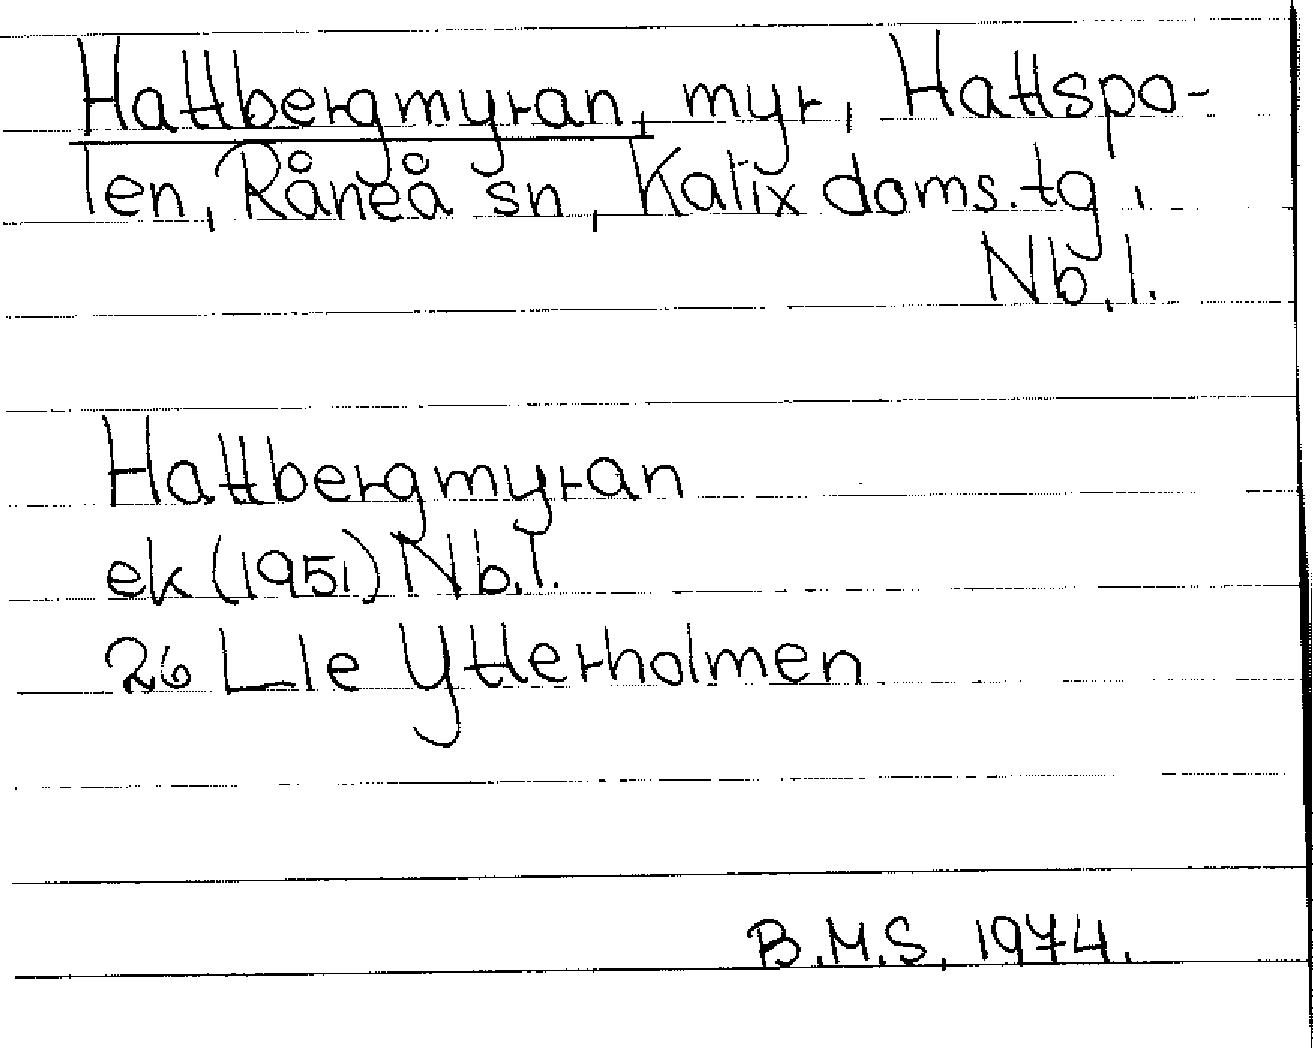 Hattbergmyran, myr, Hattspo-
len, Råneå sn, Kalix doms.tg,
Nb.l.
Hattbergmyran
ek (1951) Nb.l.
26 L 1e Ytterholmen
B.M.S, 1974.